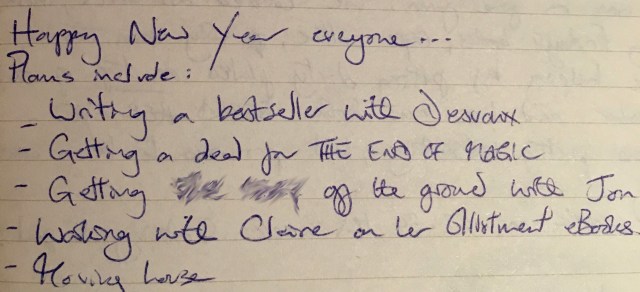 Happy New Year everyone...
Plans include:
- Writing a bestseller with Desvaux
- Getting a deal for THE END OF MAGIC
- Getting off the ground with Jon
- Working with Claire on her Allotment eBooks.
- Moving house